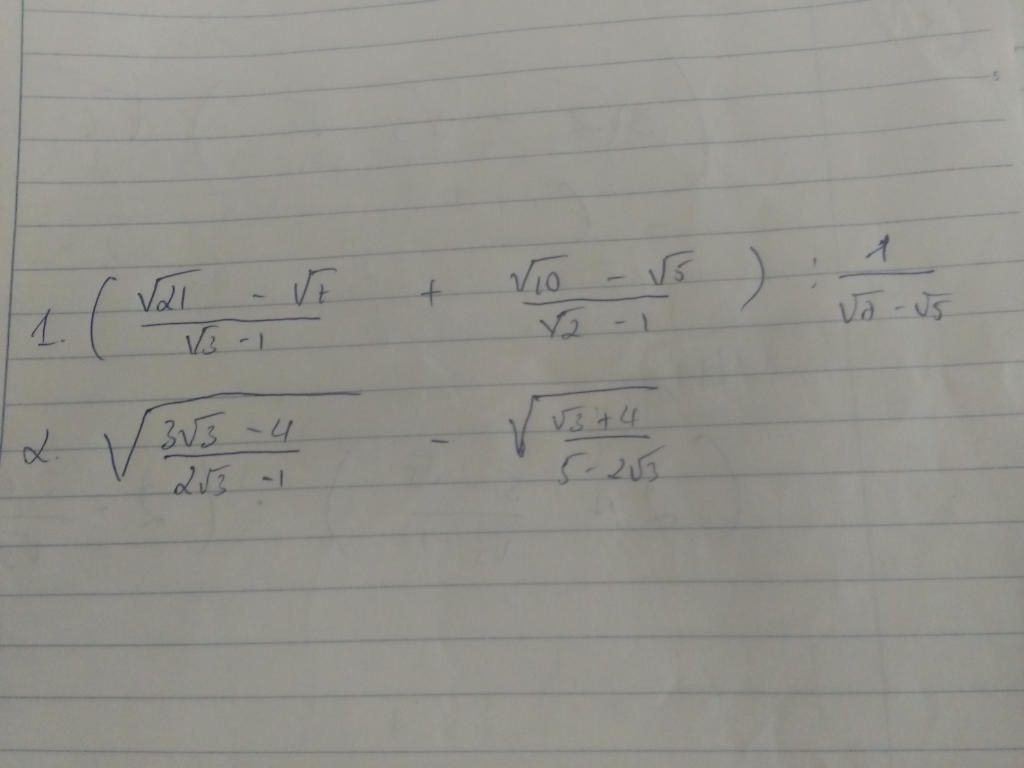 1. ( \frac{√21 - √7}{√3 - 1} + \frac{√10 - √5}{√2 - 1} ) : \frac{1}{√2 - √5}
2. \sqrt{\frac{3√3 - 4}{2√3 - 1}} - \sqrt{\frac{√3 + 4}{5 - 2√3}}